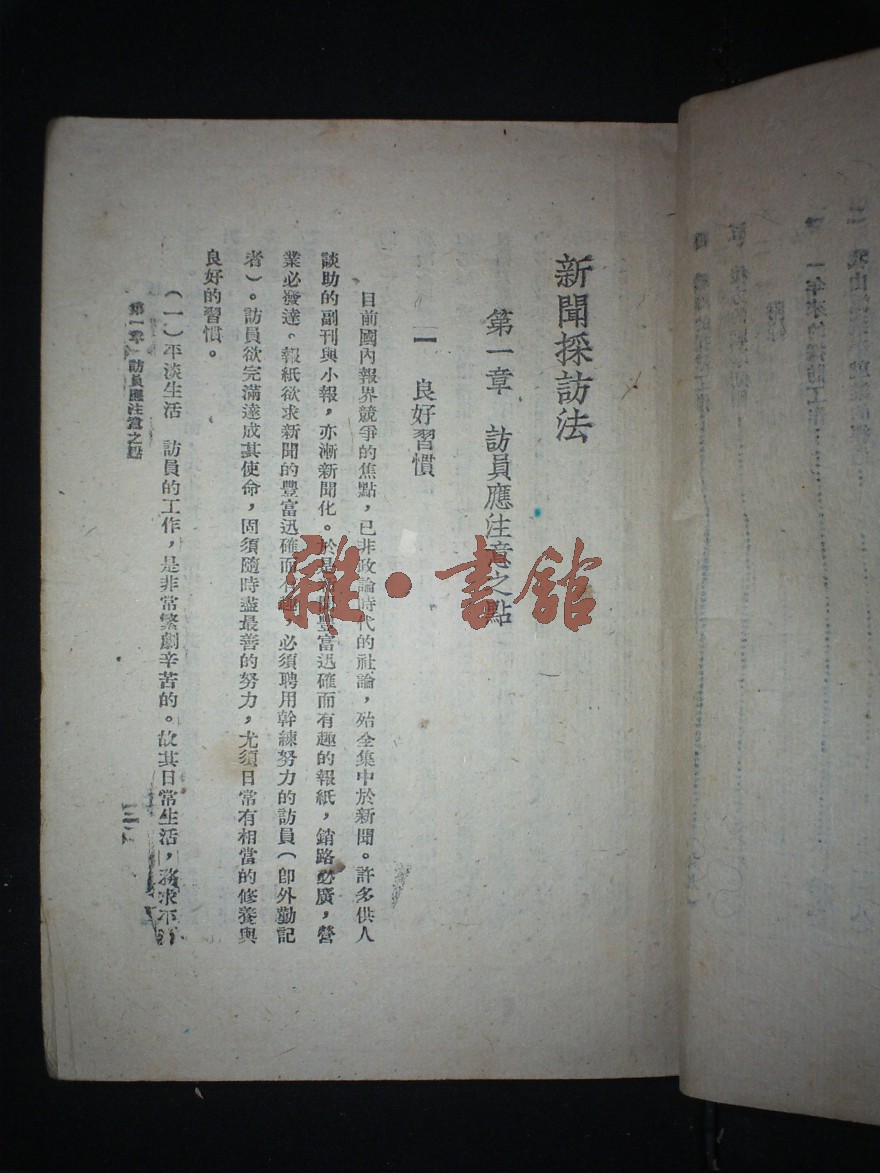 新聞採訪法
第一章　訪員應注意之點
一　良好習慣
目前國內報界競爭的焦點，已非政論時代的社論，殆全集中於新聞。許多供人
談助的副刊與小報，亦漸新聞化。於是豐富迅確而有趣的報紙，銷路必廣，營
業必發達。報紙欲求新聞的豐富迅確而有趣，必須聘用幹練努力的訪員（卽外勤記
者）。訪員欲完滿達成其使命，固須隨時盡最善的努力，尤須日常有相當的修養與
良好的習慣。
（一）平淡生活　訪員的工作，是非常繁劇辛苦的。故其日常生活，務求平
第一章　訪員應注意之點
雜·書館
一年來的採訪工作